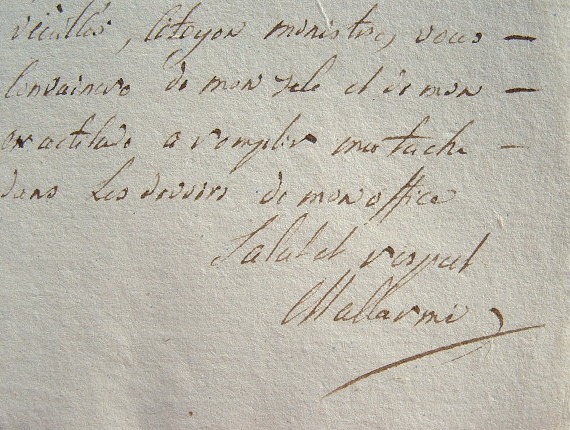 veuillés, Citoyen ministre, vous —
Convaincre de mon zele et de mon —
exactitude a remplir ma tache —
dans les devoirs de mon office
Salut et respect
Mallarmé